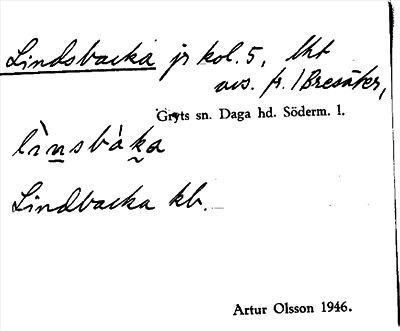 Lindsbacka jr kol. 5, lht
avs. fr. 1 Bresäker,
Gryts sn. Daga hd. Söderm. l.
lìnsbàka
Lindbacka kb.
Artur Olsson 1946.